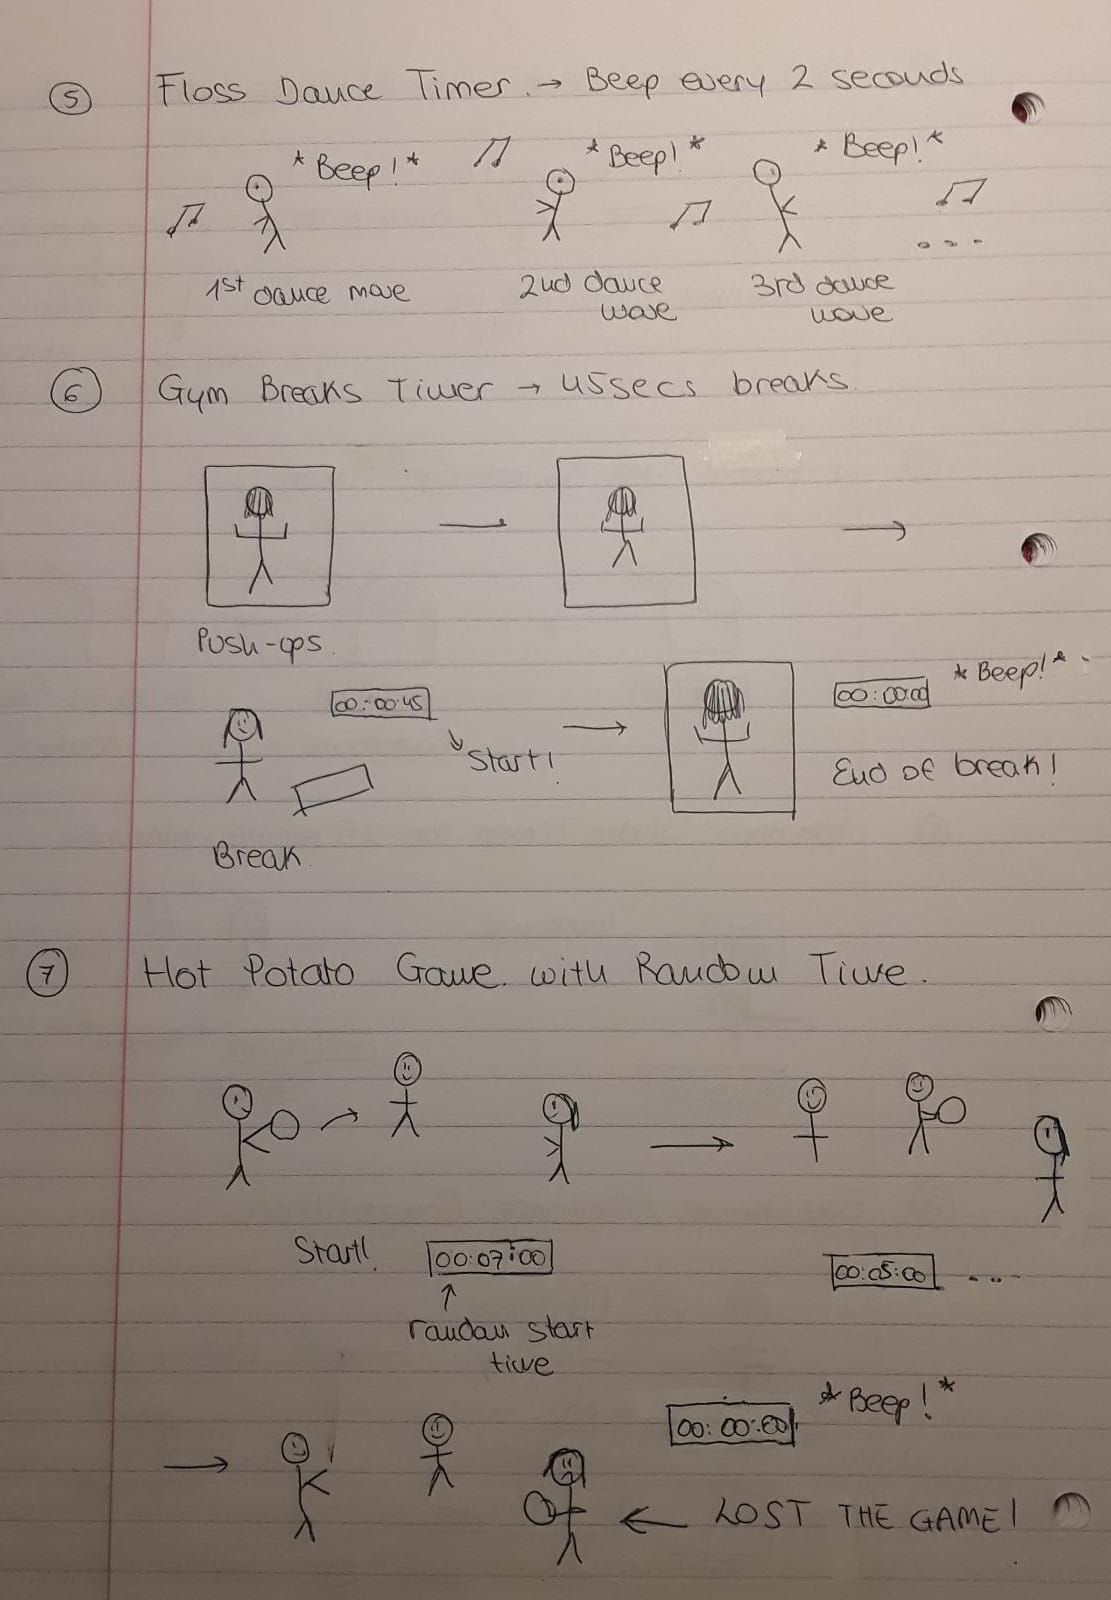 5 Floss Dance Timer. → Beep every 2 seconds
*Beep!* *Beep!* *Beep!*
1st dance move 2nd dance move 3rd dance move
6 Gym Breaks Timer → 45secs breaks
Push-ups.
00:00:45 00:00:00 *Beep!*
Start! End of break!
Break.
7 Hot Potato Game. with Random Time.
Start! 00:07:00 00:05:00 ....
random start
time
00:00:00 *Beep!*
← LOST THE GAME!